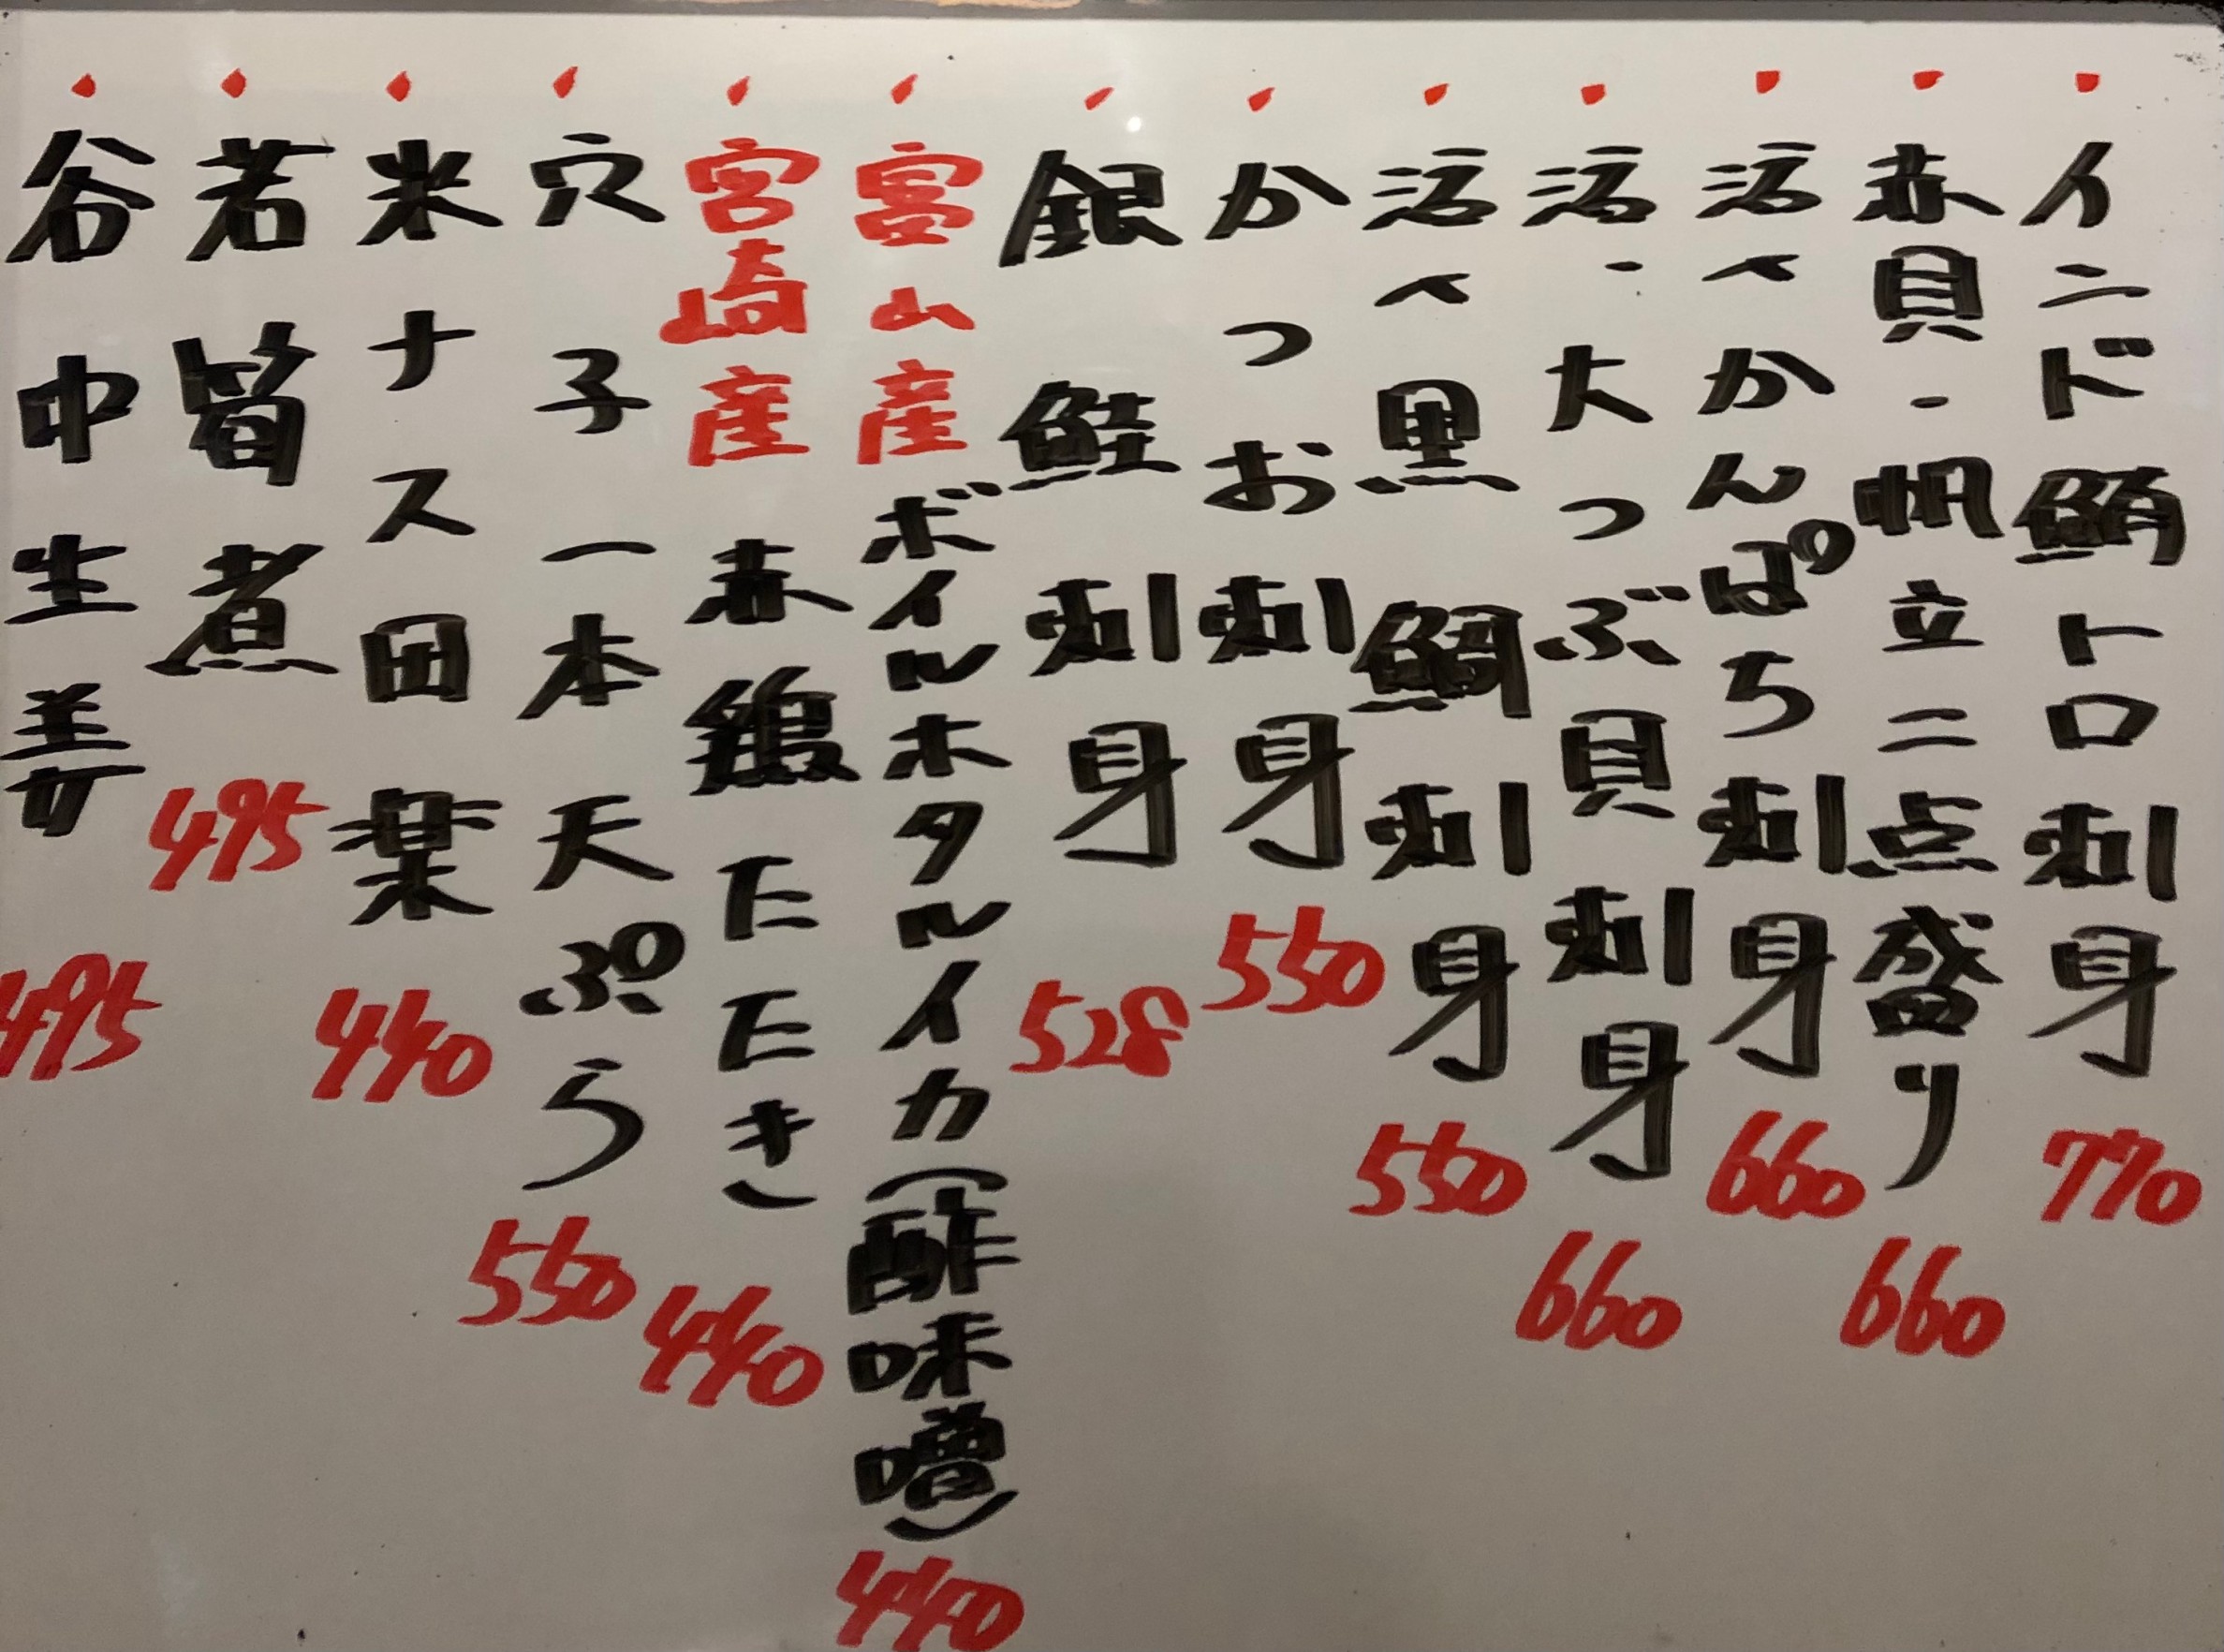 ・インド鮪トロ刺身 770
・赤貝・帆立二点盛り 660
・活〆かんぱち刺身 660
・活・大つぶ貝刺身 660
・活〆黒鯛刺身 550
・かつお刺身 550
・銀鮭刺身 528
・富山産ボイルホタルイカ(酢味噌) 440
・宮崎産赤鶏たたき 440
・穴子一本天ぷら 550
・米ナス田楽 440
・若筍煮 495
・谷中生姜 495